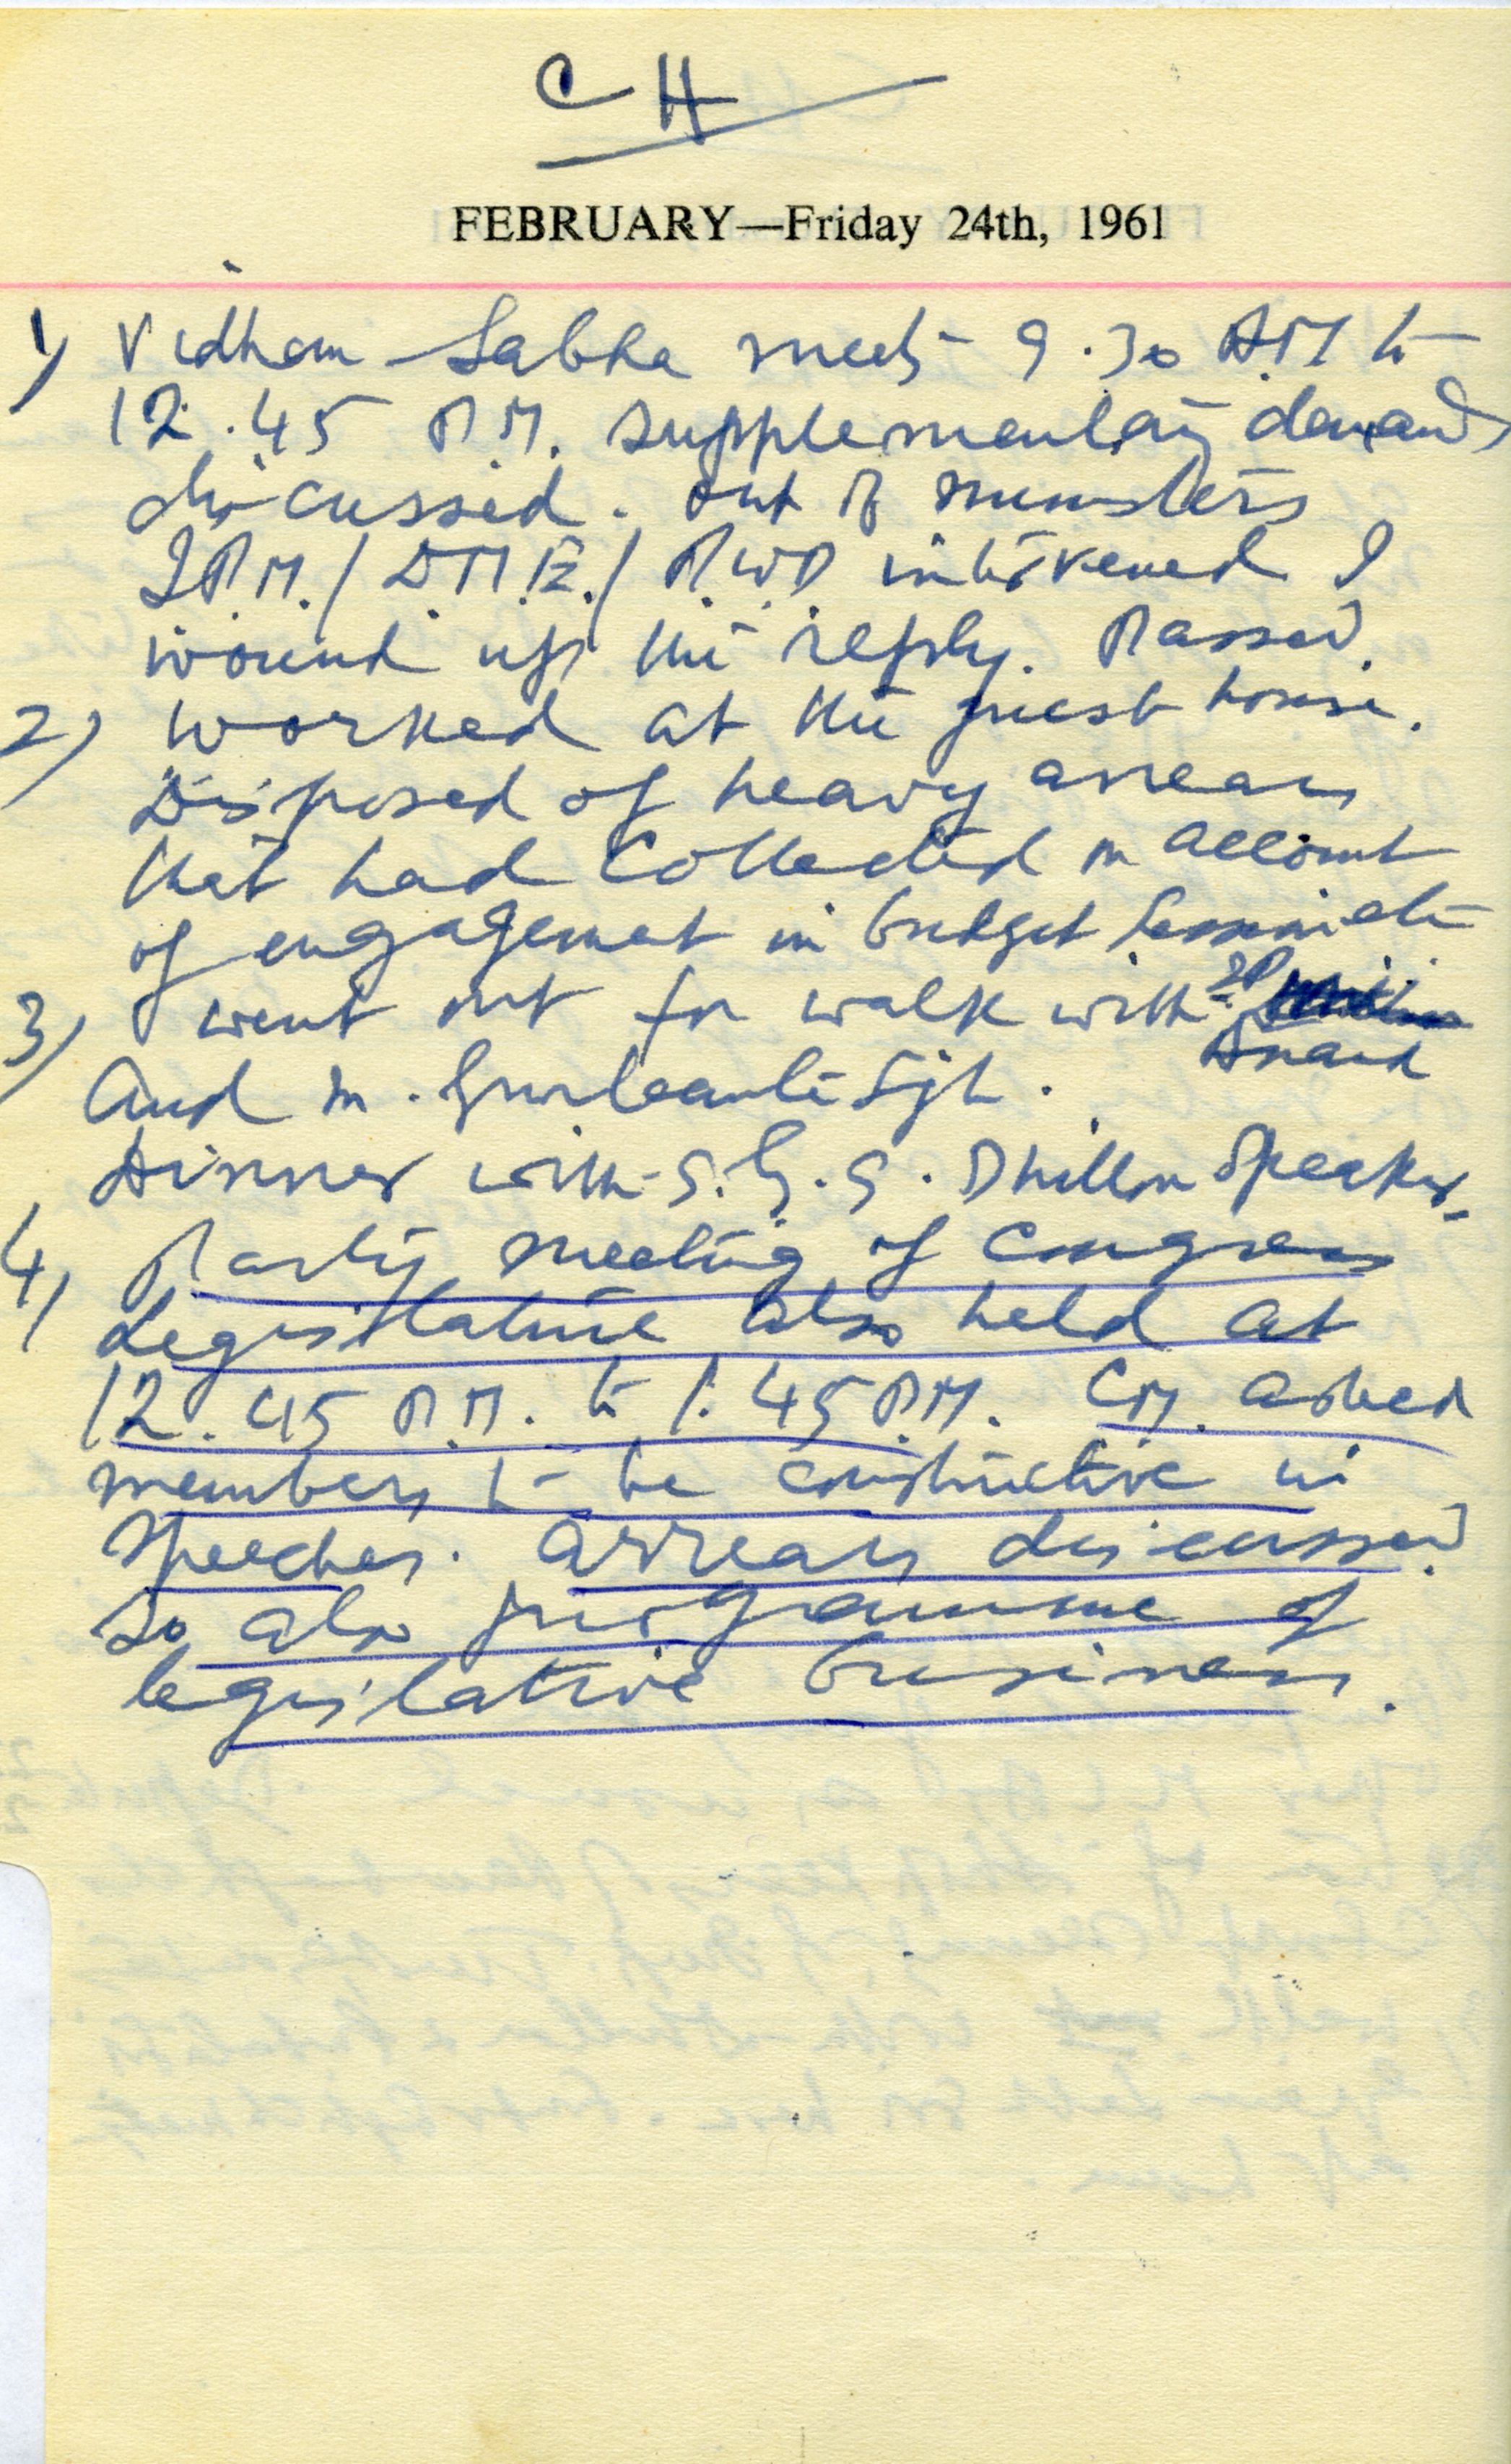 CH
FEBRUARY—Friday 24th, 1961
1) Vidhan Sabha meets 9.30 AM to
12.45 P.M. supplementary demands
discussed. out of ministers
I.P.M./D.M.E./P.W.D intervened I
wound up the reply. Passed.
2) worked at the guest house.
Disposed of heavy arrears
that had collected on account
of engagement in budget session etc
3) went out for walk with
Anand
and M. Gurbanta Sgh.
Dinner with S. G. S. Dhillon Speaker.
4) Party meeting of Congress
Legislature also held at
12.45 P.M. to 1.45 P.M. CM. asked
members to be constructive in
speeches. Arrears discussed
so also programme of
legislative business.